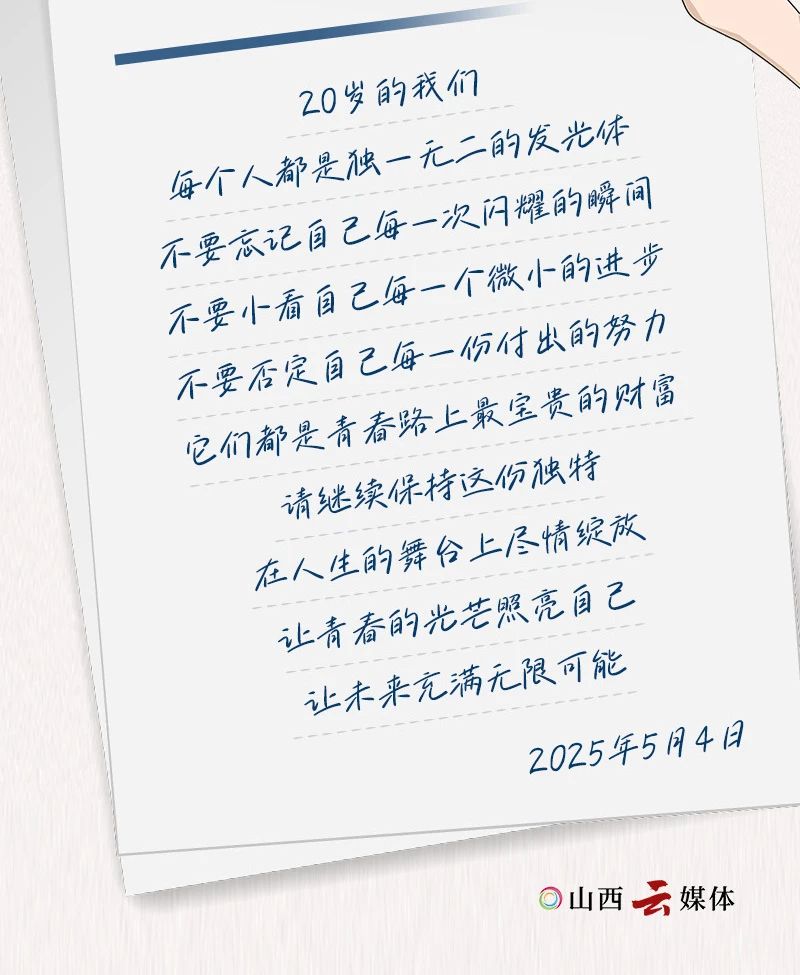 20岁的我们
每个人都是独一无二的发光体
不要忘记自己每一次闪耀的瞬间
不要小看自己每一个微小的进步
不要否定自己每一份付出的努力
它们都是青春路上最宝贵的财富
请继续保持这份独特
在人生的舞台上尽情绽放
让青春的光芒照亮自己
让未来充满无限可能
2025年5月4日
山西云媒体